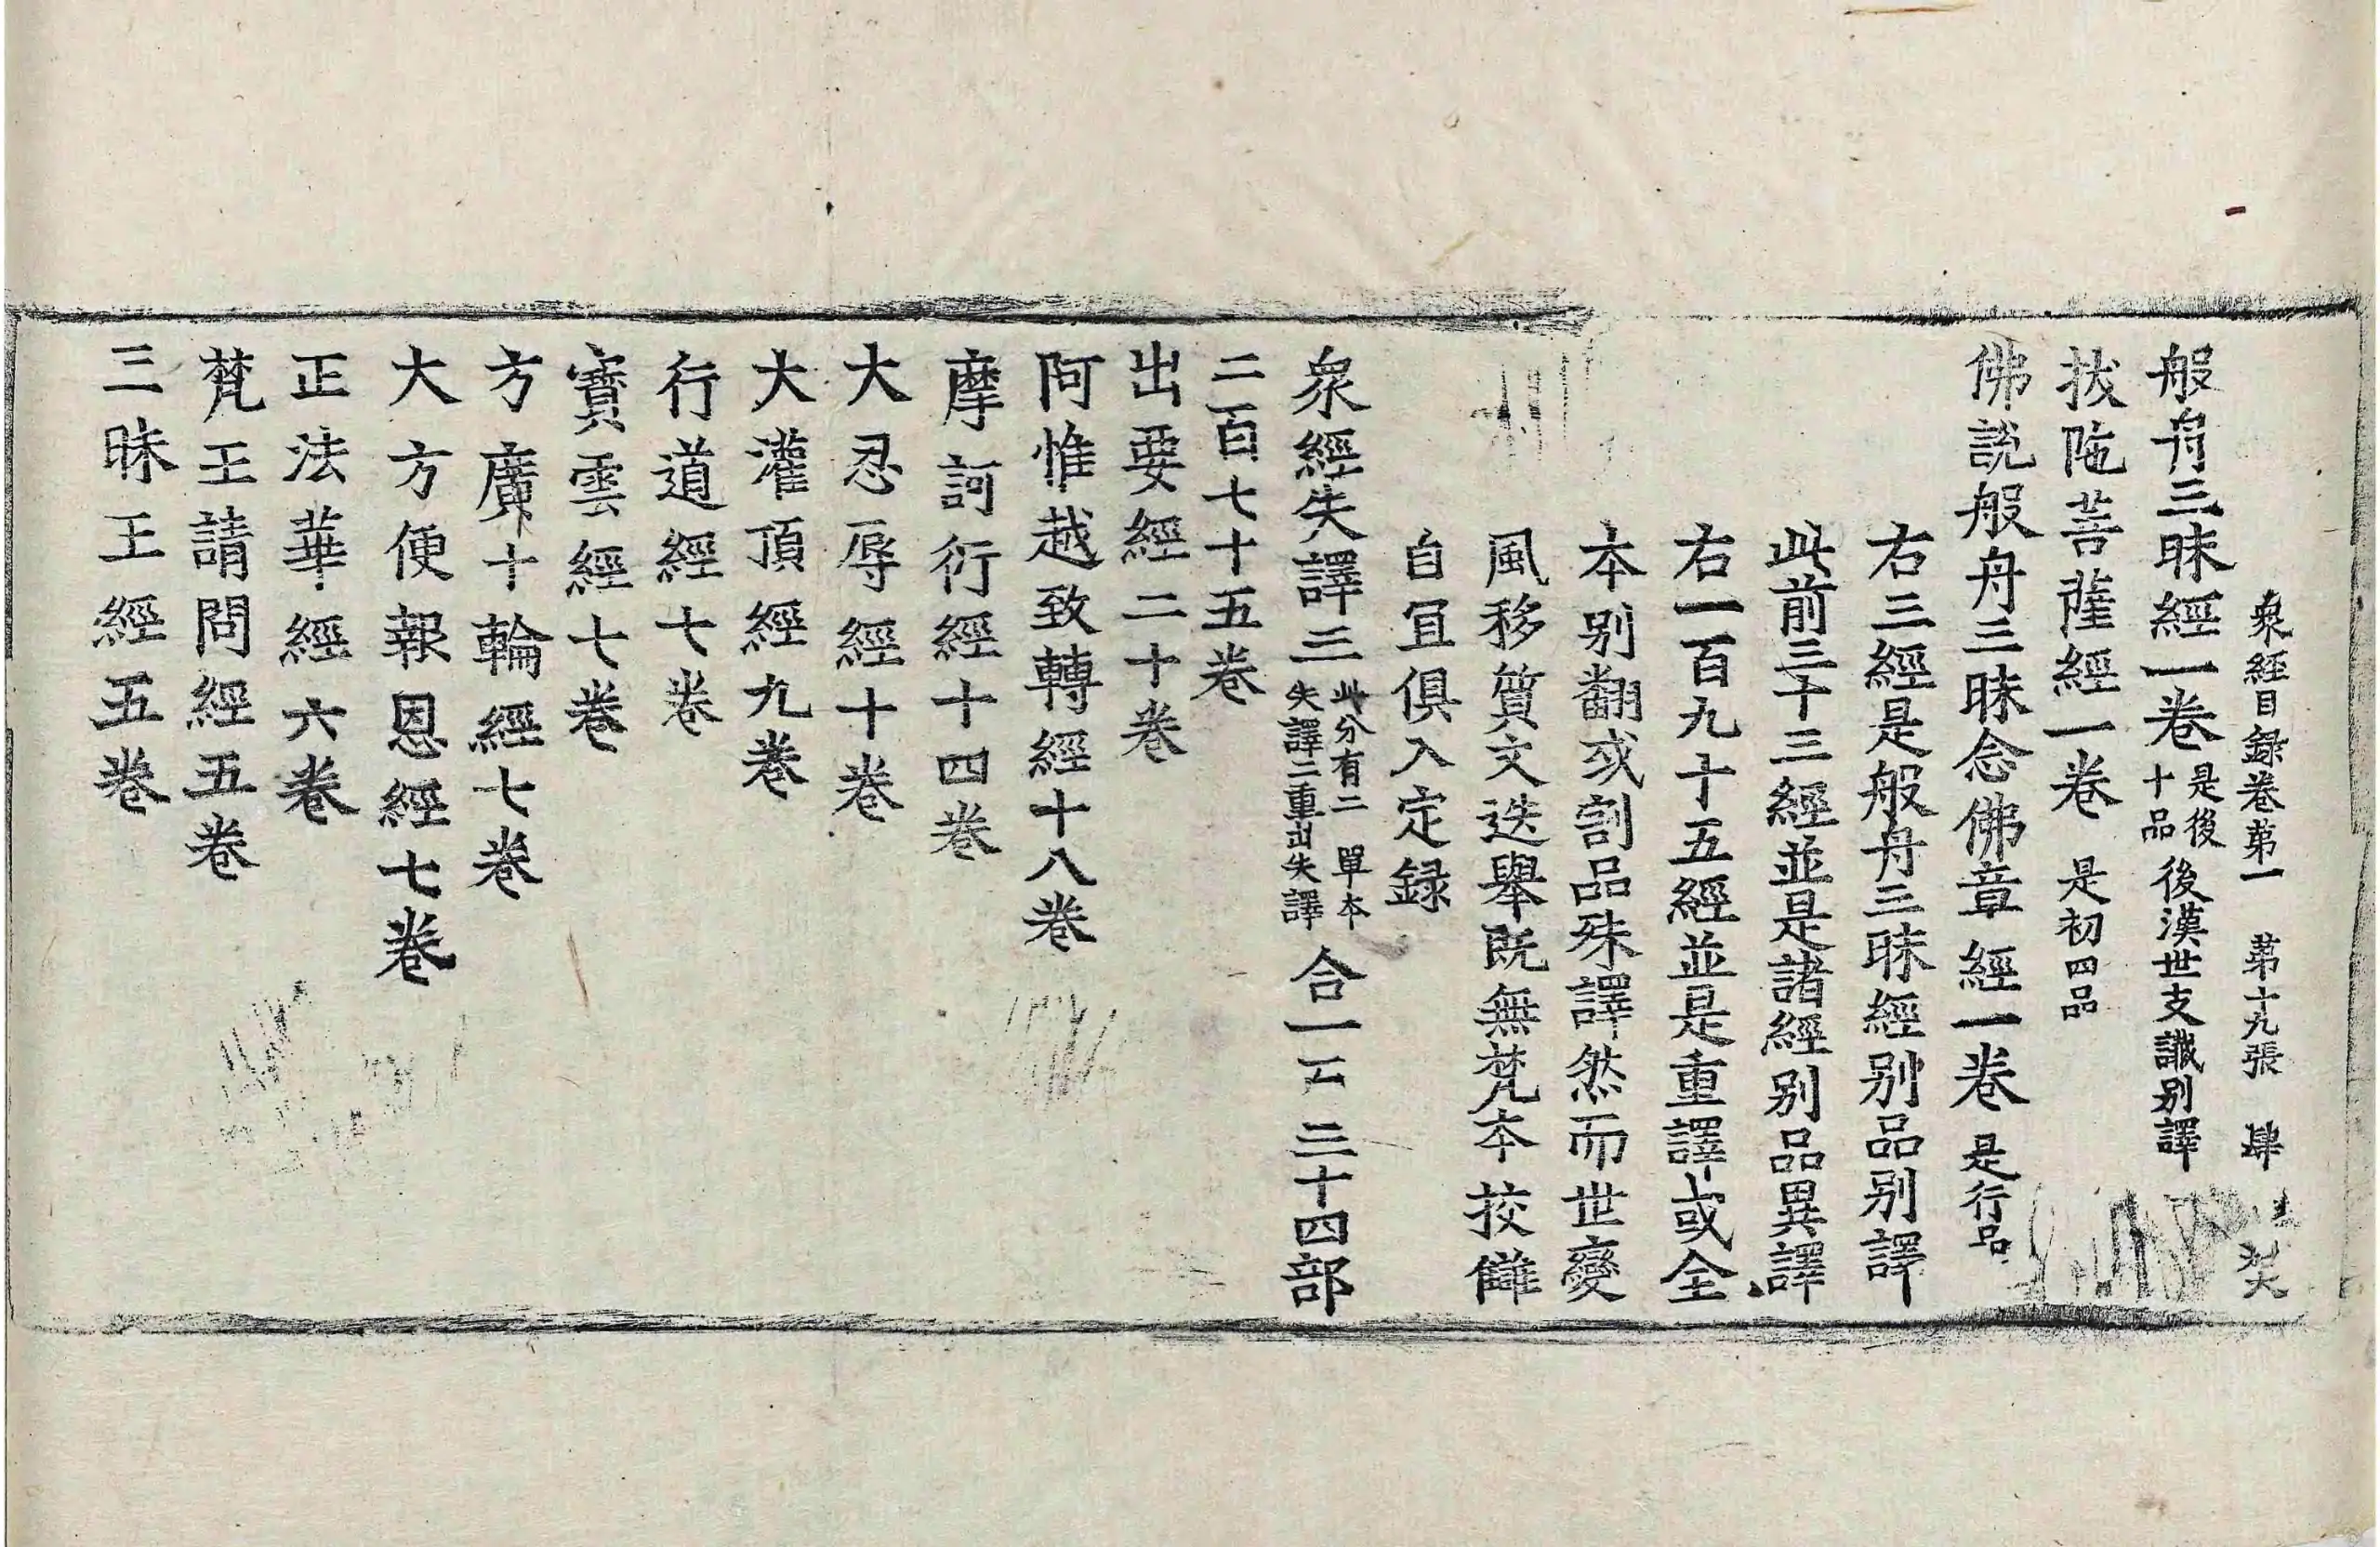 衆經目録卷第一 第十九張 肆
般舟三昧經一卷 是後十品 後漢世支讖別譯
拔陁菩薩經一卷 是初四品
佛說般舟三昧念佛章經一卷 是行品
右三經是般舟三昧經别品别譯
此前三十三經並是諸經别品異譯
右一百九十五經並是重譯或全
本别翻或割品殊譯然而世變
風移質文迭舉旣無梵本挍讎
自冝俱入定録
衆經失譯三 此分有二 單本失譯二重出失譯 合一 三十四部
二百七十五卷
出要經二十卷
阿惟越致轉經十八卷
摩訶衍經十四卷
大忍辱經十卷
大灌頂經九卷
行道經七卷
寶雲經七卷
方廣十輪經七卷
大方便報恩經七卷
正法華經六卷
梵王請問經五卷
三昧王經五卷